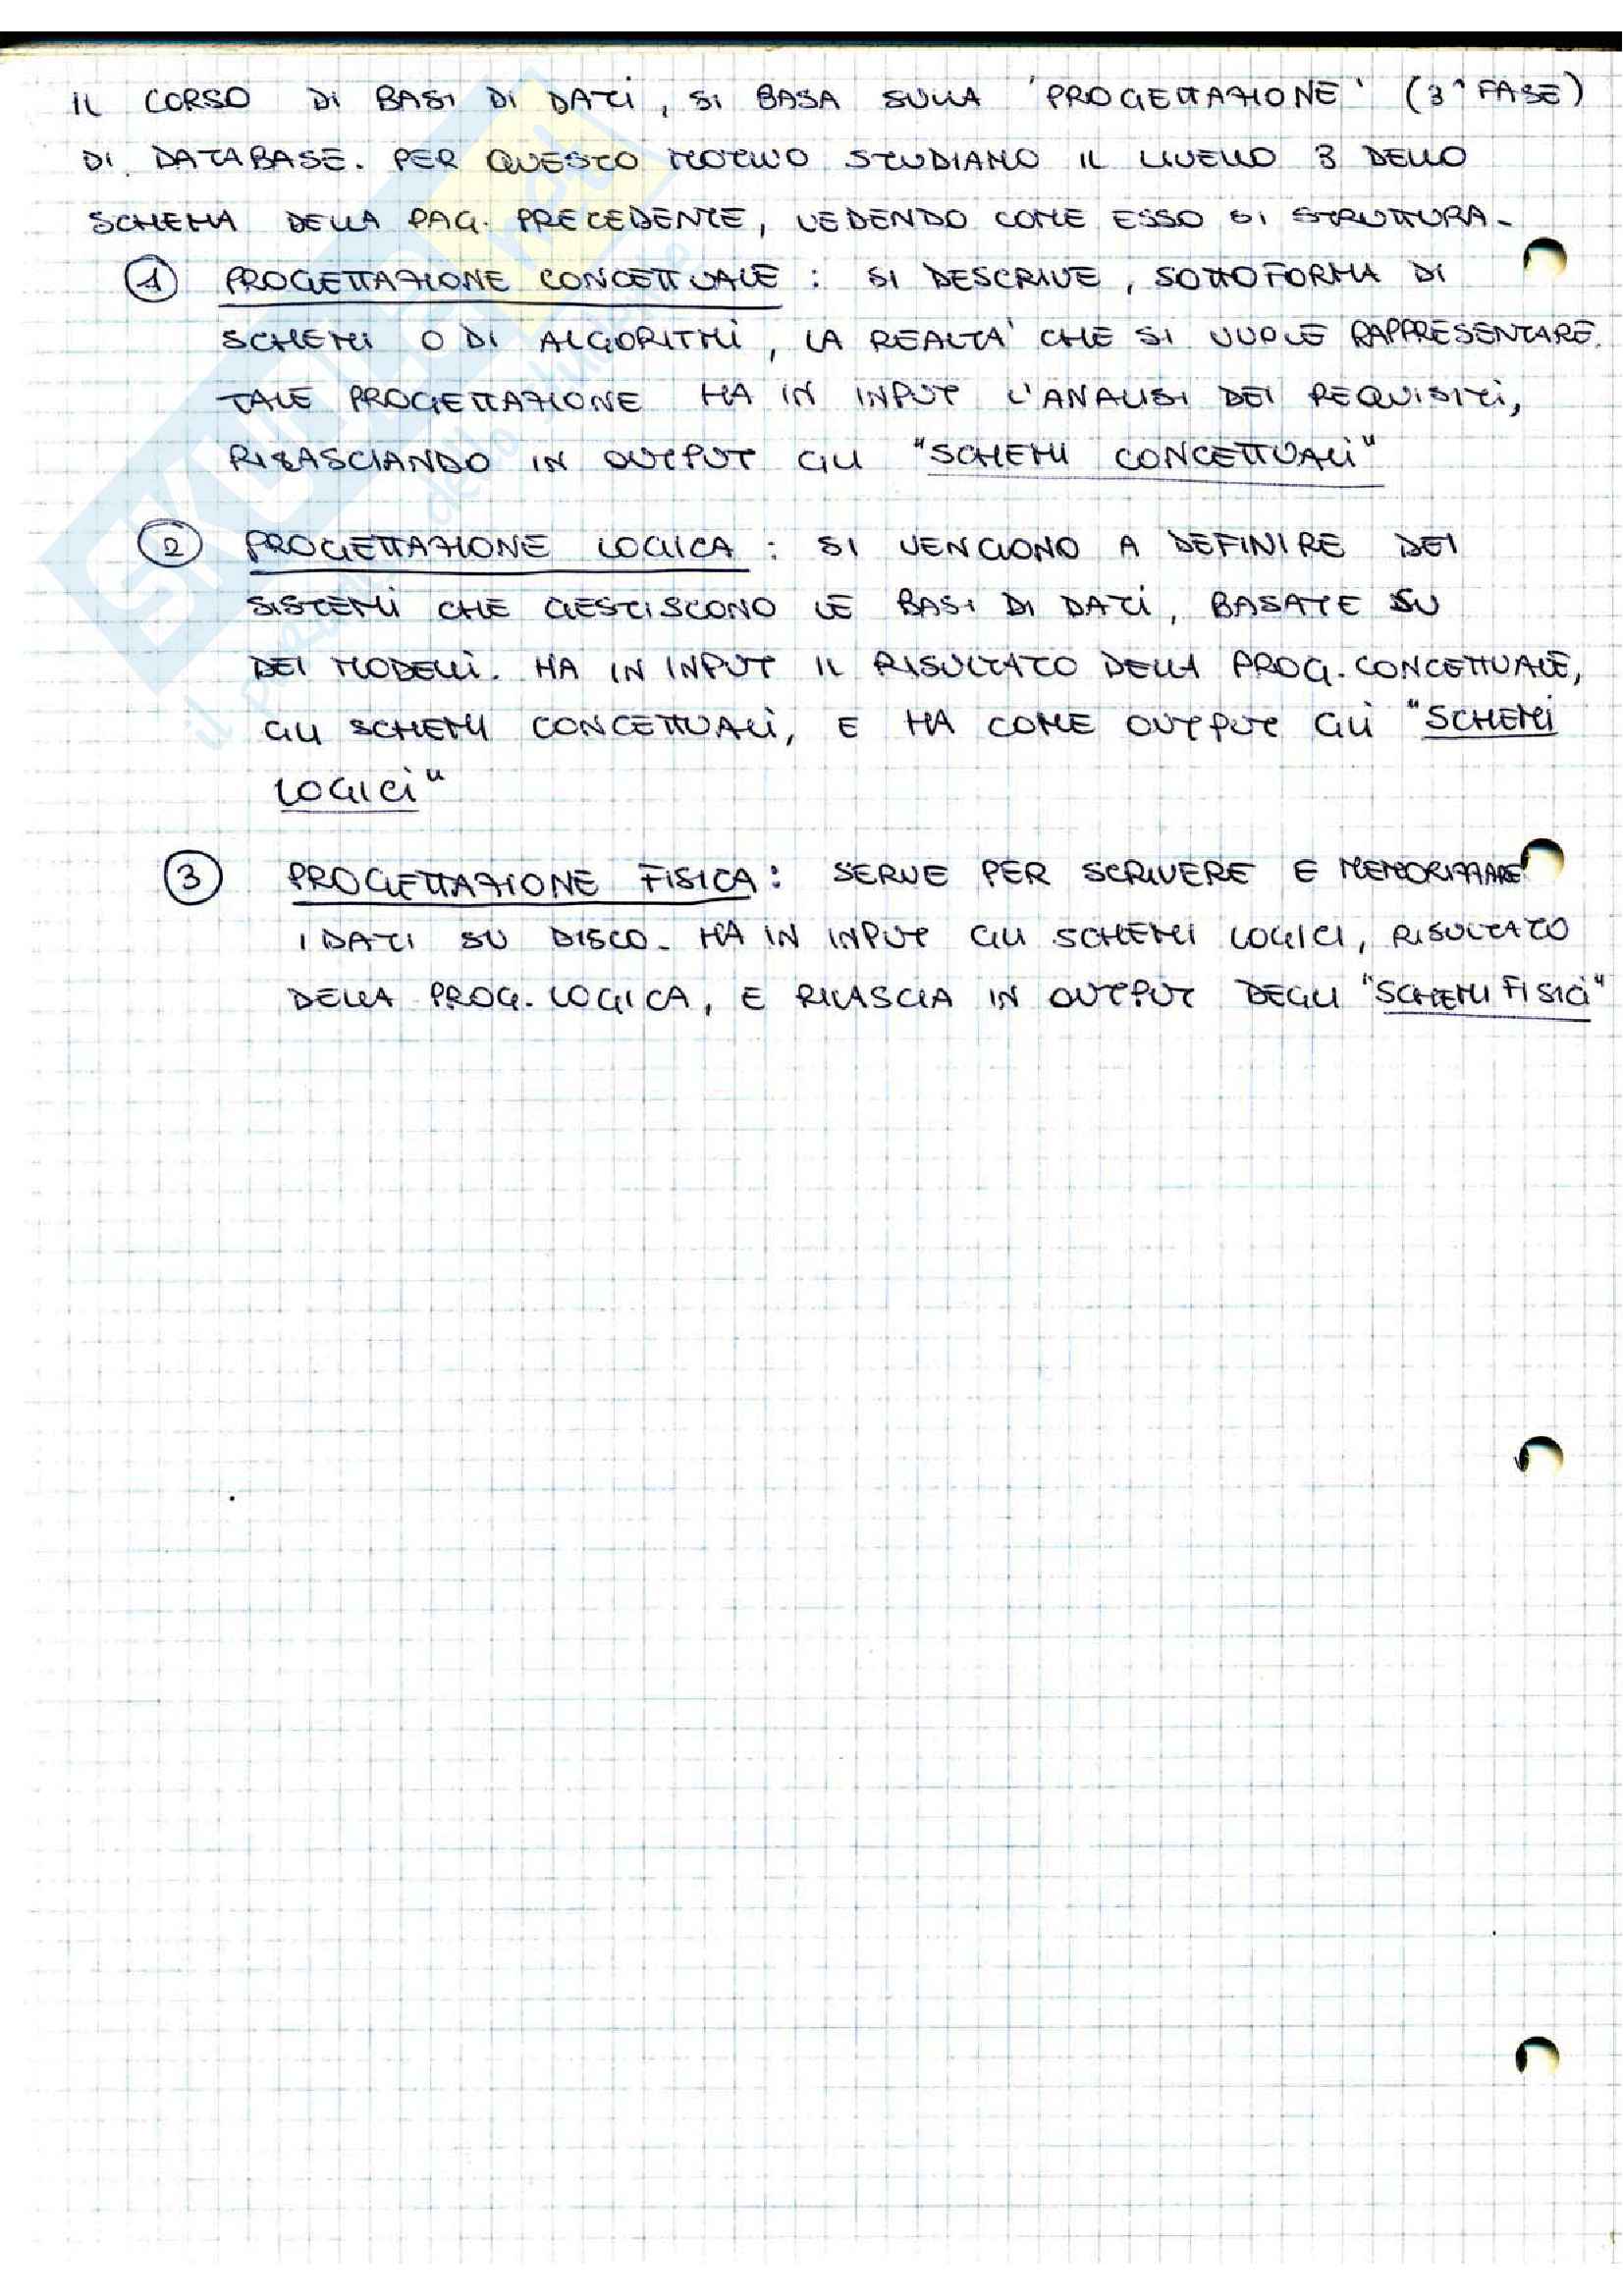 IL CORSO DI BASI DI DATI, SI BASA SULLA 'PROGETTAZIONE' (3^ FASE)
DI DATABASE. PER QUESTO MOTIVO STUDIAMO IL LIVELLO 3 DELLO
SCHEMA DELLA PAG. PRECEDENTE, VEDENDO COME ESSO SI STRUTTURA.
1 PROGETTAZIONE CONCETTUALE : SI DESCRIVE, SOTTOFORMA DI
SCHEMI O DI ALGORITMI, LA REALTA' CHE SI VUOLE RAPPRESENTARE.
TALE PROGETTAZIONE HA IN INPUT L'ANALISI DEI REQUISITI,
RILASCIANDO IN OUTPUT GLI "SCHEMI CONCETTUALI"
2 PROGETTAZIONE LOGICA : SI VENGONO A DEFINIRE DEI
SISTEMI CHE GESTISCONO LE BASI DI DATI, BASATE SU
DEI MODELLI. HA IN INPUT IL RISULTATO DELLA PROG. CONCETTUALE,
GLI SCHEMI CONCETTUALI, E HA COME OUTPUT GLI "SCHEMI
LOGICI"
3 PROGETTAZIONE FISICA: SERVE PER SCRIVERE E MEMORIZZARE
I DATI SU DISCO. HA IN INPUT GLI SCHEMI LOGICI, RISULTATO
DELLA PROG. LOGICA, E RILASCIA IN OUTPUT DEGLI "SCHEMI FISICI"